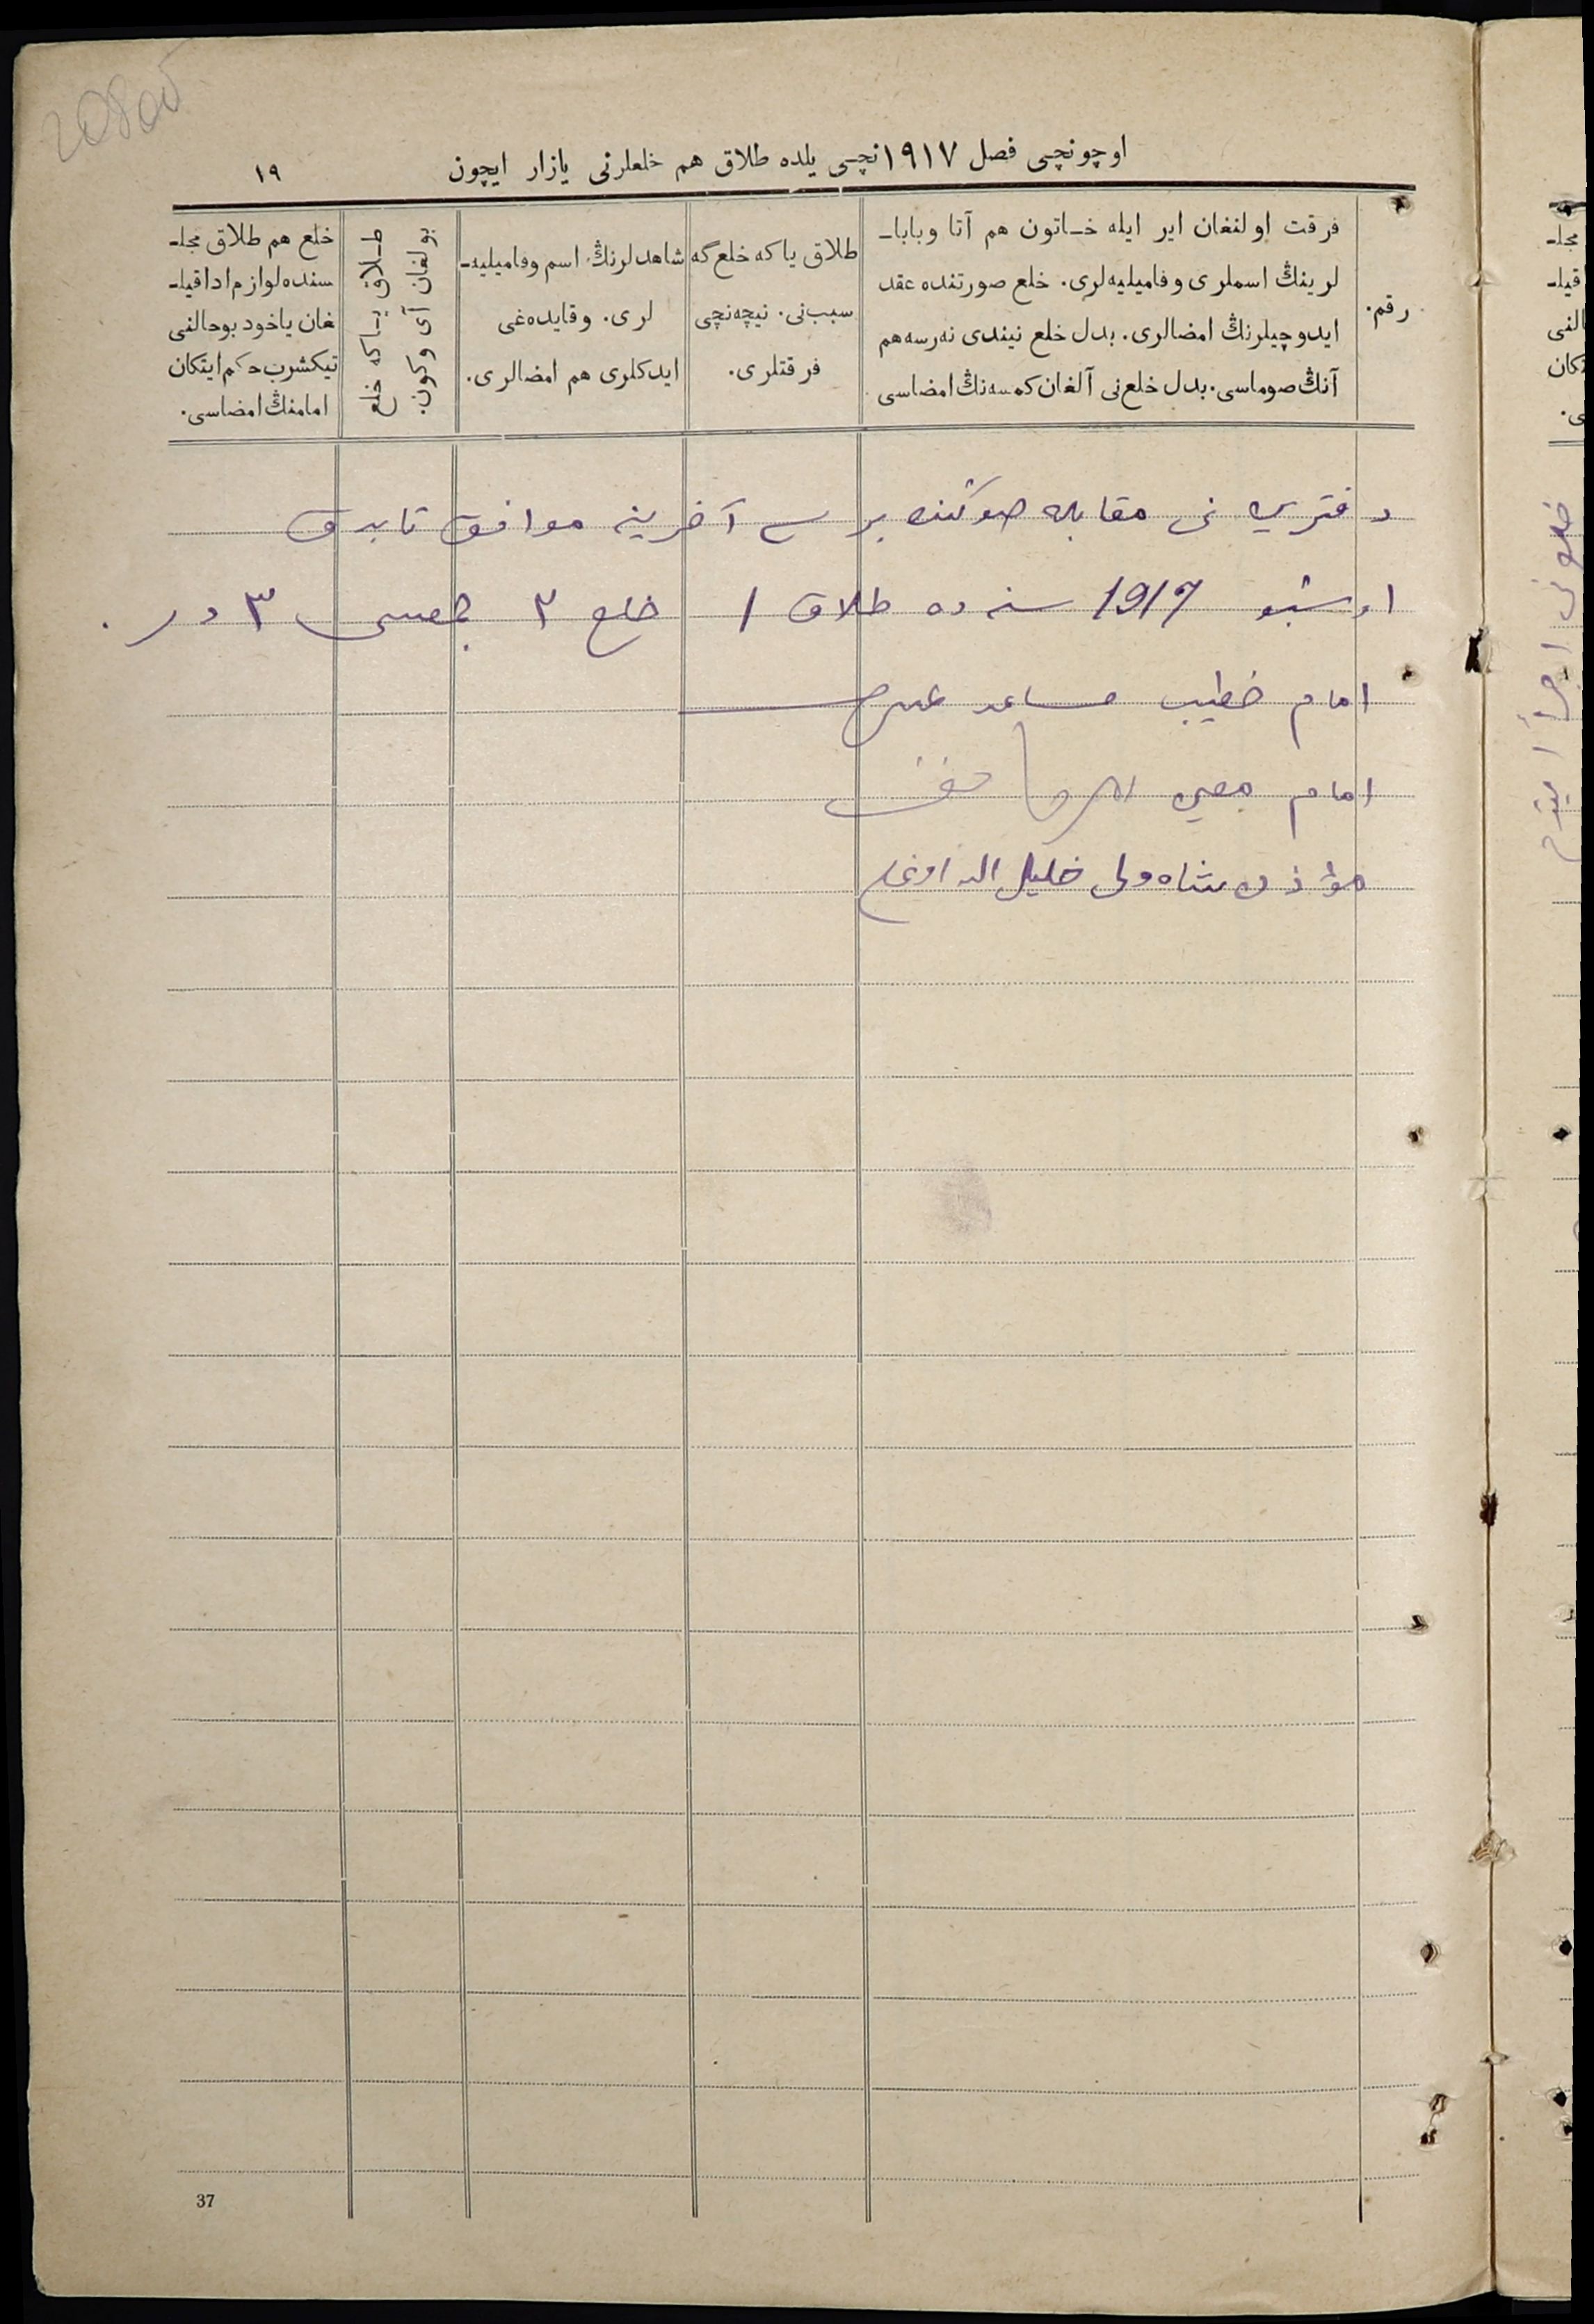 اوچونچی فصل ۱۹۱۷نچی یلده طلاق هم خلعلرنی یازار ایچون
۱۹
رقم.
فرقت اولنغان ایر ایله خاتون هم آتا وبابا-
لرینڭ اسملری وفامیلیه‌لری. خلع صورتنده عقد
ایدوچیلرنڭ امضالری. بدل خلع نیندی نه‌رسه هم
آنڭ صوماسی. بدل خلع‌نی آلغان کمسه‌نڭ امضاسی
طلاق یاکه خلع گه
سبب‌نی. نیچه‌نچی
فرقتلری.
شاهدلرنڭ اسم وفامیلیه-
لری. وقایده‌غی
ایدکلری هم امضالری.
طلاق یاکه خلع
بولغان آی وکون.
خلع هم طلاق مجلـ
سنده لوازم ادا قیلـ
غان یاخود بو حالنی
تیکشرب حکم ایتکان
امامنڭ امضاسی.
دفتری نی مقابله صوکنده بر سی آخرینه موافق تابدق
اوشبو 1917 سنه ده طلاق ۱ خلع ۲ جمعسی ۳ در.
امام خطیب مساعد
امام
مؤذن شاه ولی خلیل الله اوغلی
37